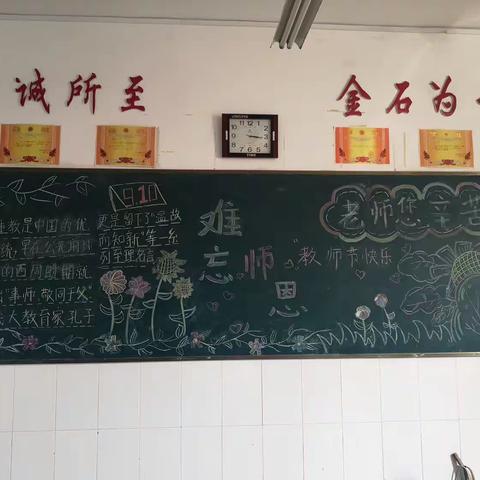 诚所至
金石为
9.10
重教是中国的优
更是留下了"温故
而知新"等一系
列至理名言
的西周时期就
"事师敬同于父"
教育家孔子
难忘师恩
"教师节快乐
老师您辛苦